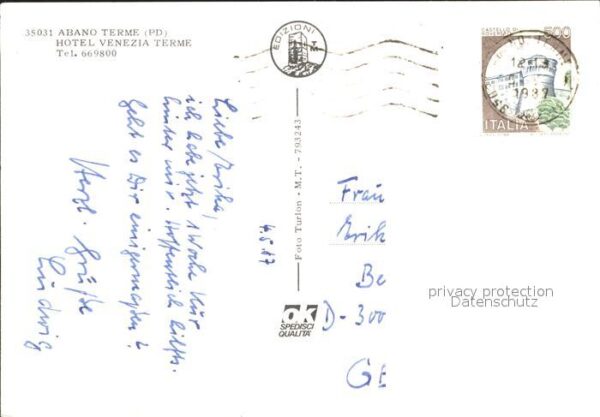 35031 ABANO TERME (PD)
HOTEL VENEZIA TERME
Tel. 669800
EDIZIONI
Foto Turlon - M.T. - 793243
500
ITALIA
1987
4.5.87
Liebe Erika,
ich habe jetzt 1 Woche Kur
hinter mir. Hoffentlich hilft's.
Geht es Dir einigermaßen?
Herzl. Grüße
Ludwig
Frau
Erik
Be
D-300
GE
OK
SPEDISCI
QUALITA'
privacy protection
Datenschutz